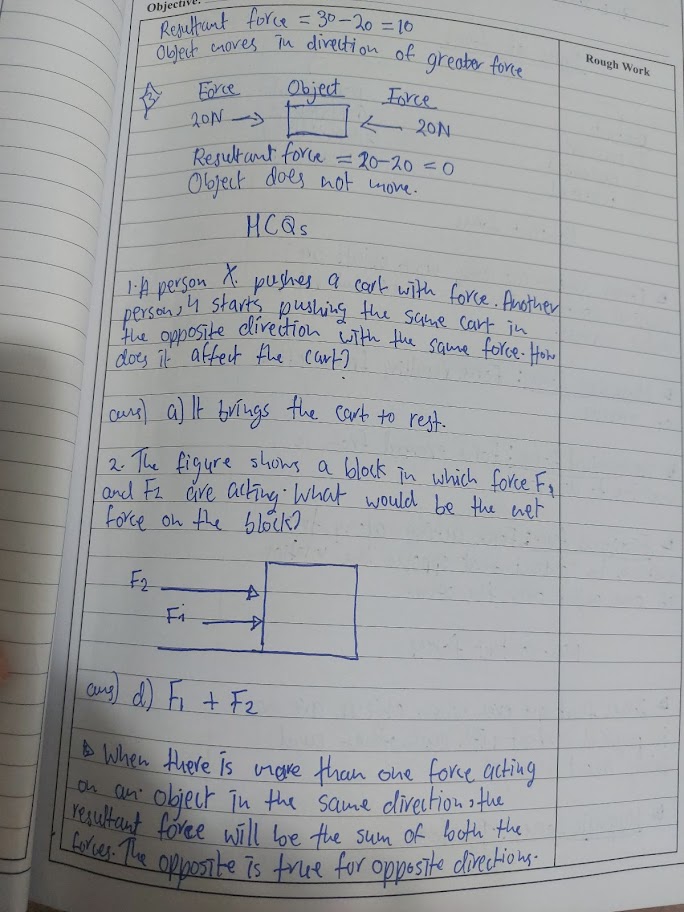 Objective:
Rough Work
Resultant force = 30-20 = 10
Object moves in direction of greater force
3
Force Object Force
20N → ← 20N
Resultant force = 20-20 = 0
Object does not move.
MCQs
1. A person X. pushes a cart with force. Another
person, Y starts pushing the same cart in
the opposite direction with the same force. How
does it affect the cart?
ans) a) It brings the cart to rest.
2. The figure shows a block in which force F1
and F2 are acting. What would be the net
force on the block?
F2
F1
ans) d) F1 + F2
When there is more than one force acting
on an object in the same direction, the
resultant force will be the sum of both the
forces. The opposite is true for opposite directions.